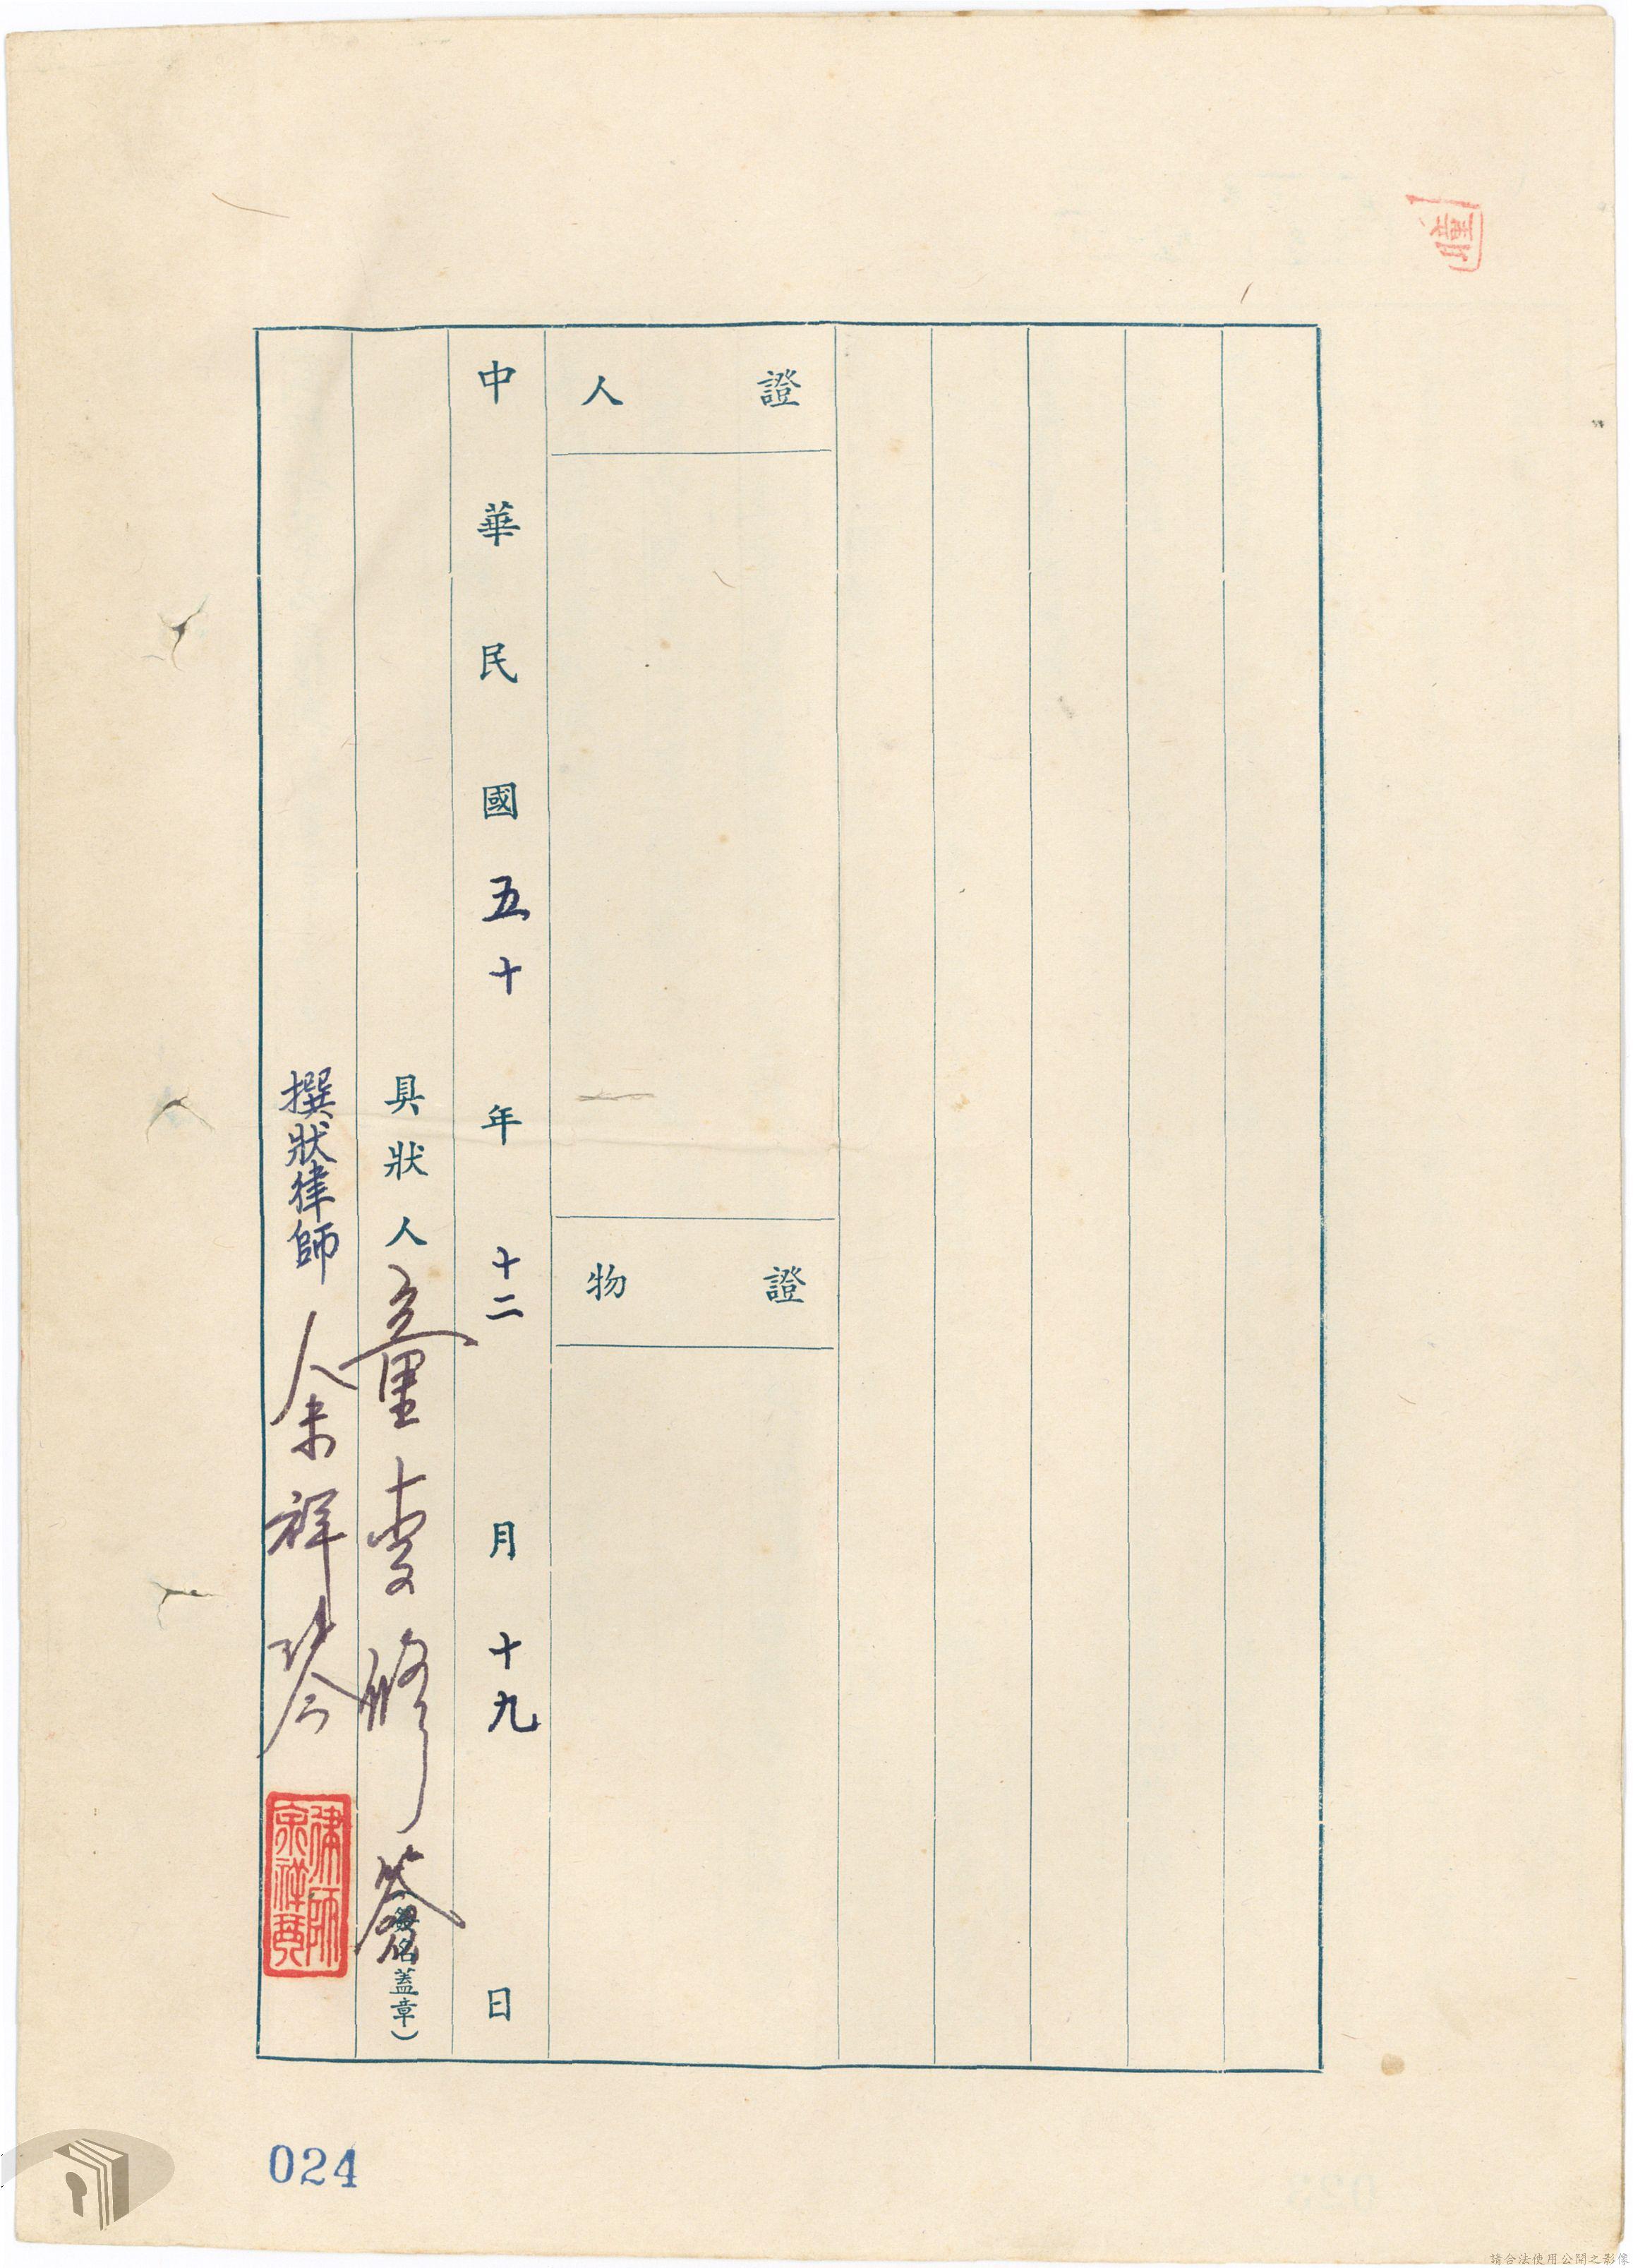 證人
證物
中華民國五十年十二月十九日
具狀人 童李修 (簽名蓋章)
撰狀律師 余祥琴
律師余祥琴
024
請合法使用公開之影像